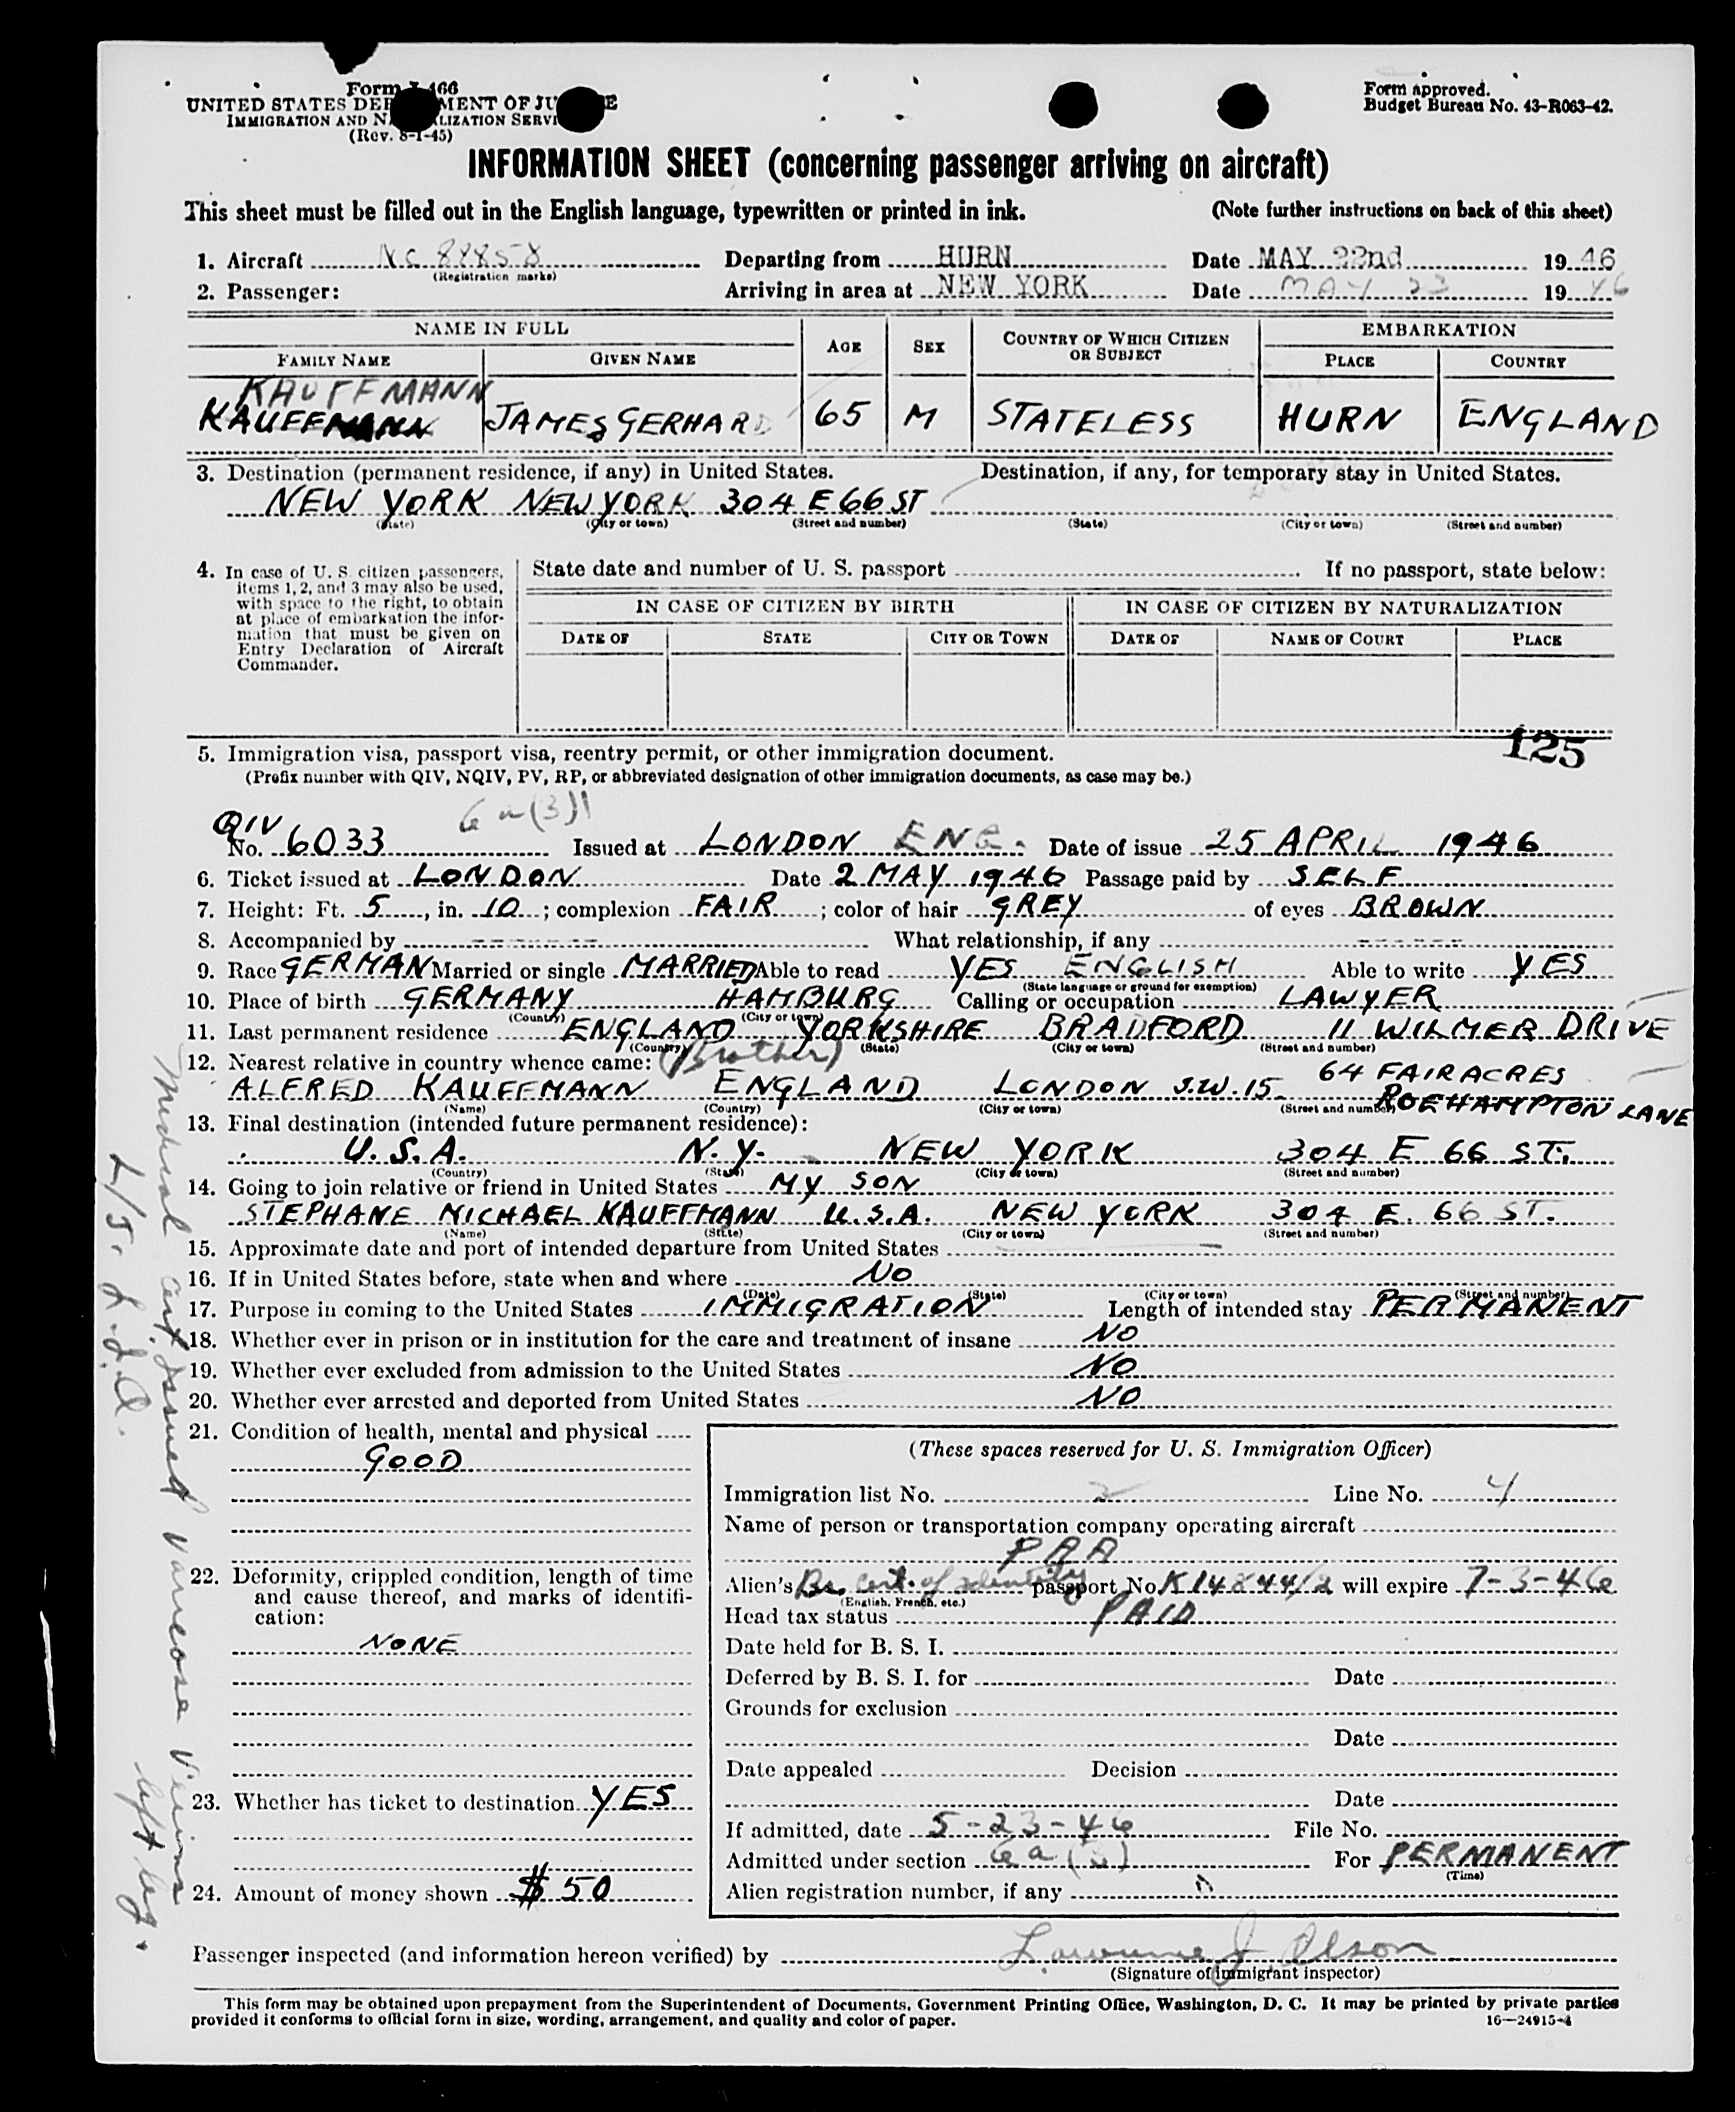 Form I-466
UNITED STATES DEPARTMENT OF JUSTICE
IMMIGRATION AND NATURALIZATION SERVICE
(Rev. 8-1-45)
Form approved.
Budget Bureau No. 43-R063-42.
INFORMATION SHEET (concerning passenger arriving on aircraft)
This sheet must be filled out in the English language, typewritten or printed in ink. (Note further instructions on back of this sheet)
1. Aircraft NC 88858 Departing from HURN Date MAY 22nd 1946
(Registration marks)
2. Passenger: Arriving in area at NEW YORK Date MAY 23 1946
NAME IN FULL AGE SEX COUNTRY OF WHICH CITIZEN OR SUBJECT EMBARKATION
FAMILY NAME GIVEN NAME PLACE COUNTRY
KAUFFMANN
KAUFFMANN JAMES GERHARD 65 M STATELESS HURN ENGLAND
3. Destination (permanent residence, if any) in United States. Destination, if any, for temporary stay in United States.
NEW YORK NEW YORK 304 E 66 ST
(State) (City or town) (Street and number) (State) (City or town) (Street and number)
4. In case of U. S. citizen passengers,
items 1, 2, and 3 may also be used,
with space to the right, to obtain
at place of embarkation the infor-
mation that must be given on
Entry Declaration of Aircraft
Commander.
State date and number of U. S. passport If no passport, state below:
IN CASE OF CITIZEN BY BIRTH IN CASE OF CITIZEN BY NATURALIZATION
DATE OF STATE CITY OR TOWN DATE OF NAME OF COURT PLACE
125
5. Immigration visa, passport visa, reentry permit, or other immigration document.
(Prefix number with QIV, NQIV, PV, RP, or abbreviated designation of other immigration documents, as case may be.)
6 a (3)
QIV
No. 6033 Issued at LONDON ENG. Date of issue 25 APRIL 1946
6. Ticket issued at LONDON Date 2 MAY 1946 Passage paid by SELF
7. Height: Ft. 5, in. 10; complexion FAIR; color of hair GREY of eyes BROWN
8. Accompanied by ------- What relationship, if any -------
9. Race GERMAN Married or single MARRIED Able to read YES ENGLISH Able to write YES
(State language or ground for exemption)
10. Place of birth GERMANY HAMBURG Calling or occupation LAWYER
(Country) (City or town)
11. Last permanent residence ENGLAND YORKSHIRE BRADFORD 11 WILMER DRIVE
(Country) (State) (City or town) (Street and number)
12. Nearest relative in country whence came: (Brother)
ALFRED KAUFFMANN ENGLAND LONDON S.W.15 64 FAIRACRES
ROEHAMPTON LANE
(Name) (Country) (City or town) (Street and number)
13. Final destination (intended future permanent residence):
U.S.A. N.Y. NEW YORK 304 E 66 ST.
(Country) (State) (City or town) (Street and number)
14. Going to join relative or friend in United States MY SON
STEPHANE MICHAEL KAUFFMANN U.S.A. NEW YORK 304 E. 66 ST.
(Name) (State) (City or town) (Street and number)
15. Approximate date and port of intended departure from United States
16. If in United States before, state when and where NO
(Date) (State) (City or town) (Street and number)
17. Purpose in coming to the United States IMMIGRATION Length of intended stay PERMANENT
18. Whether ever in prison or in institution for the care and treatment of insane NO
19. Whether ever excluded from admission to the United States NO
20. Whether ever arrested and deported from United States NO
21. Condition of health, mental and physical
GOOD
22. Deformity, crippled condition, length of time
and cause thereof, and marks of identifi-
cation:
NONE
23. Whether has ticket to destination YES
24. Amount of money shown $ 50
(These spaces reserved for U. S. Immigration Officer)
Immigration list No. 2 Line No. 4
Name of person or transportation company operating aircraft
PAA
Alien's Br. cert. of identity passport No. K 148441/2 will expire 7-3-46
(English, French, etc.)
Head tax status PAID
Date held for B. S. I.
Deferred by B. S. I. for Date
Grounds for exclusion
Date
Date appealed Decision
Date
If admitted, date 5-23-46 File No.
Admitted under section 6a(3) For PERMANENT
(Time)
Alien registration number, if any
Medical cert issued varicose veins
left leg.
Passenger inspected (and information hereon verified) by Lawrence J. Olson
(Signature of immigrant inspector)
This form may be obtained upon prepayment from the Superintendent of Documents, Government Printing Office, Washington, D. C. It may be printed by private parties
provided it conforms to official form in size, wording, arrangement, and quality and color of paper. 16—24915-4